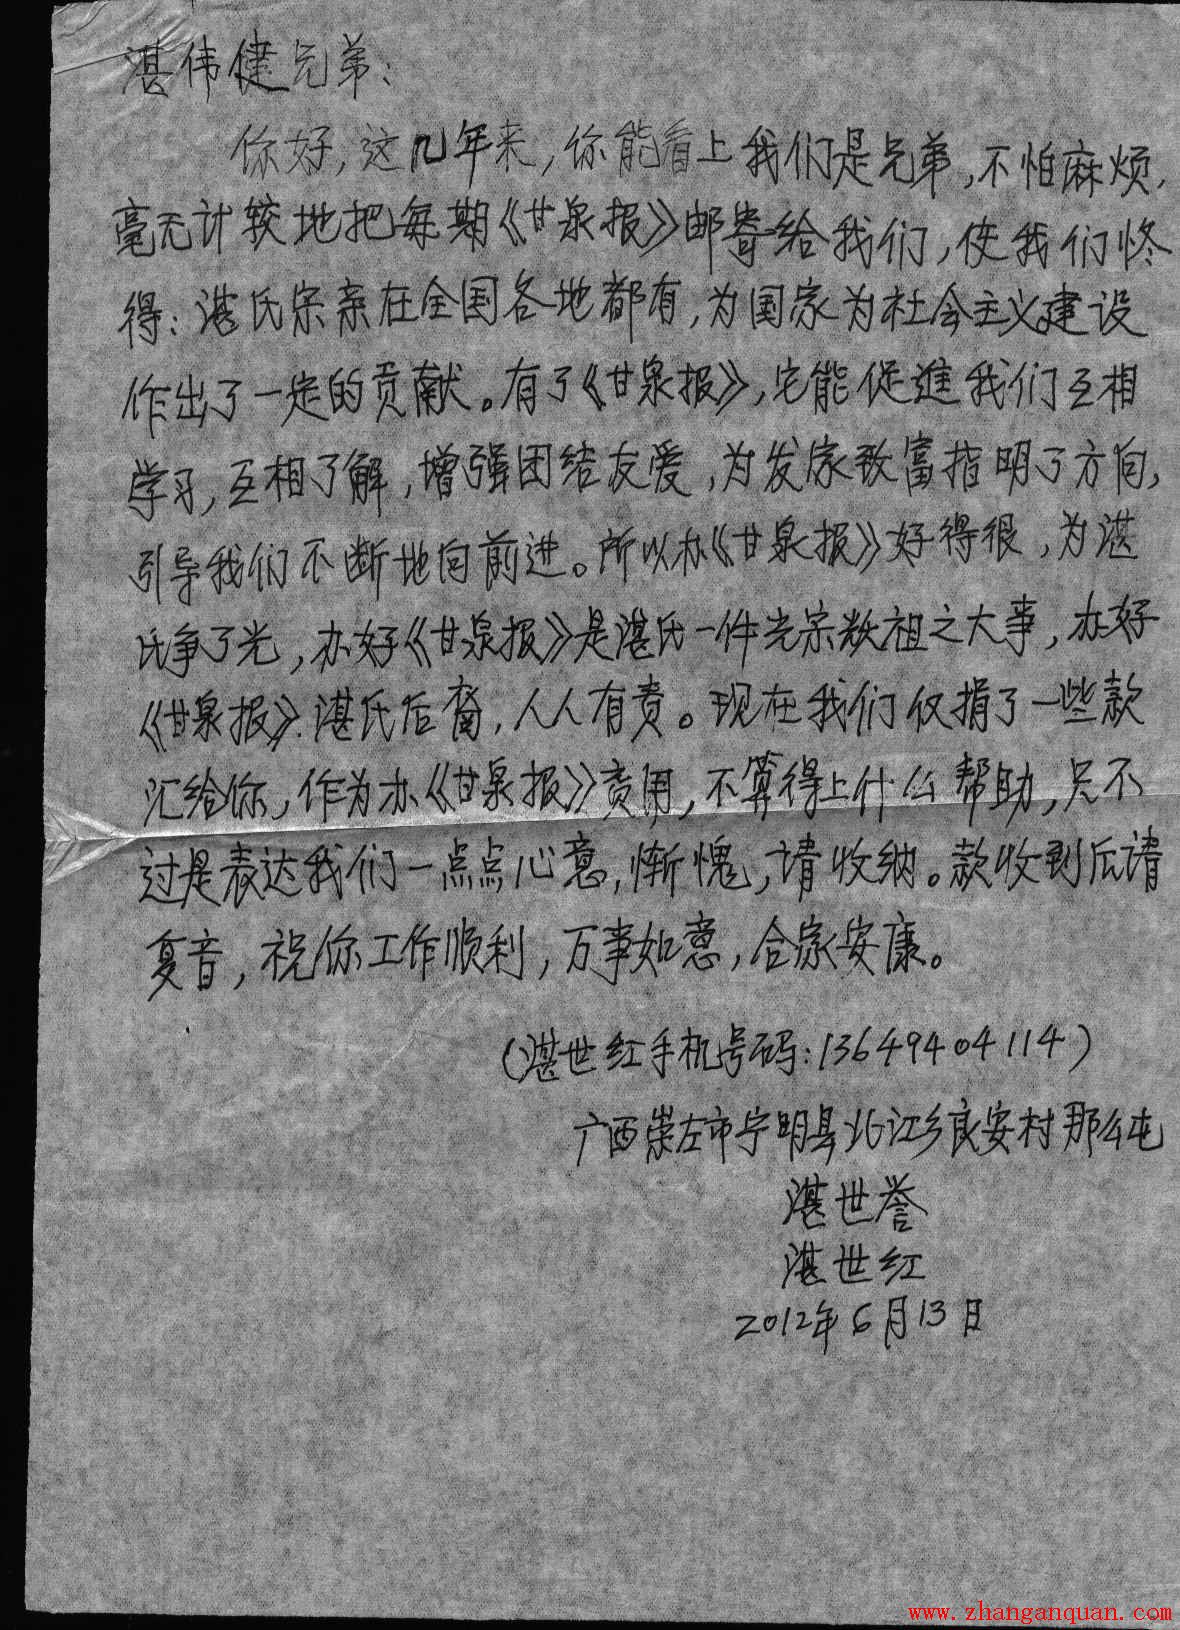 湛伟健兄弟：
你好，这几年来，你能看上我们是兄弟，不怕麻烦，
毫无计较地把每期《甘泉报》邮寄给我们，使我们
得：湛氏宗亲在全国各地都有，为国家为社会主义建设
作出了一定的贡献。有了《甘泉报》，它能促進我们互相
学习，互相了解，增强团结友爱，为发家致富指明了方向，
引导我们不断地向前进。所以办《甘泉报》好得很，为湛
氏争了光，办好《甘泉报》是湛氏一件光宗祖之大事，办好
《甘泉报》湛氏后裔，人人有责。现在我们仅捐了一些款
汇给你，作为办《甘泉报》费用，不算得上什么帮助，只不
过是表达我们一点点心意，惭愧，请收纳。款收到后请
复音，祝你工作顺利，万事如意，合家安康。
（湛世红手机号码：13649404114）
广西崇左市宁明县北江乡良安村那么屯
湛世誉
湛世红
2012年6月13日
www.zhanganquan.com